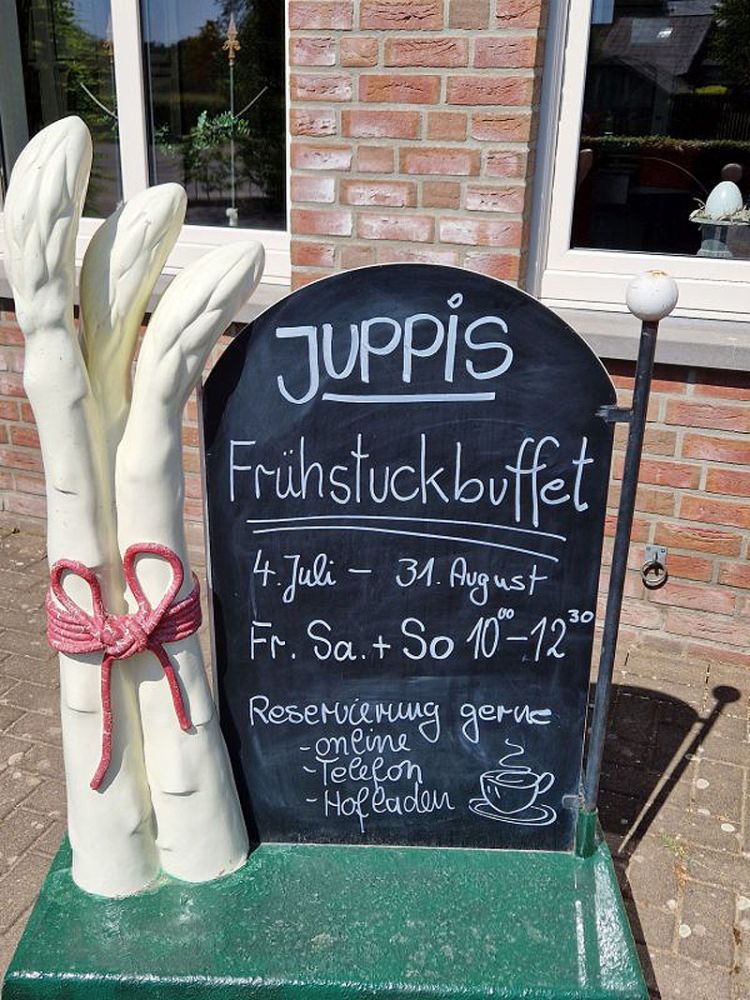 JUPPiS
Frühstuckbuffet
4. Juli - 31. August
Fr. Sa. + So 10⁰⁰-12³⁰
Reservierung gerne
- online
- Telefon
- Hofladen